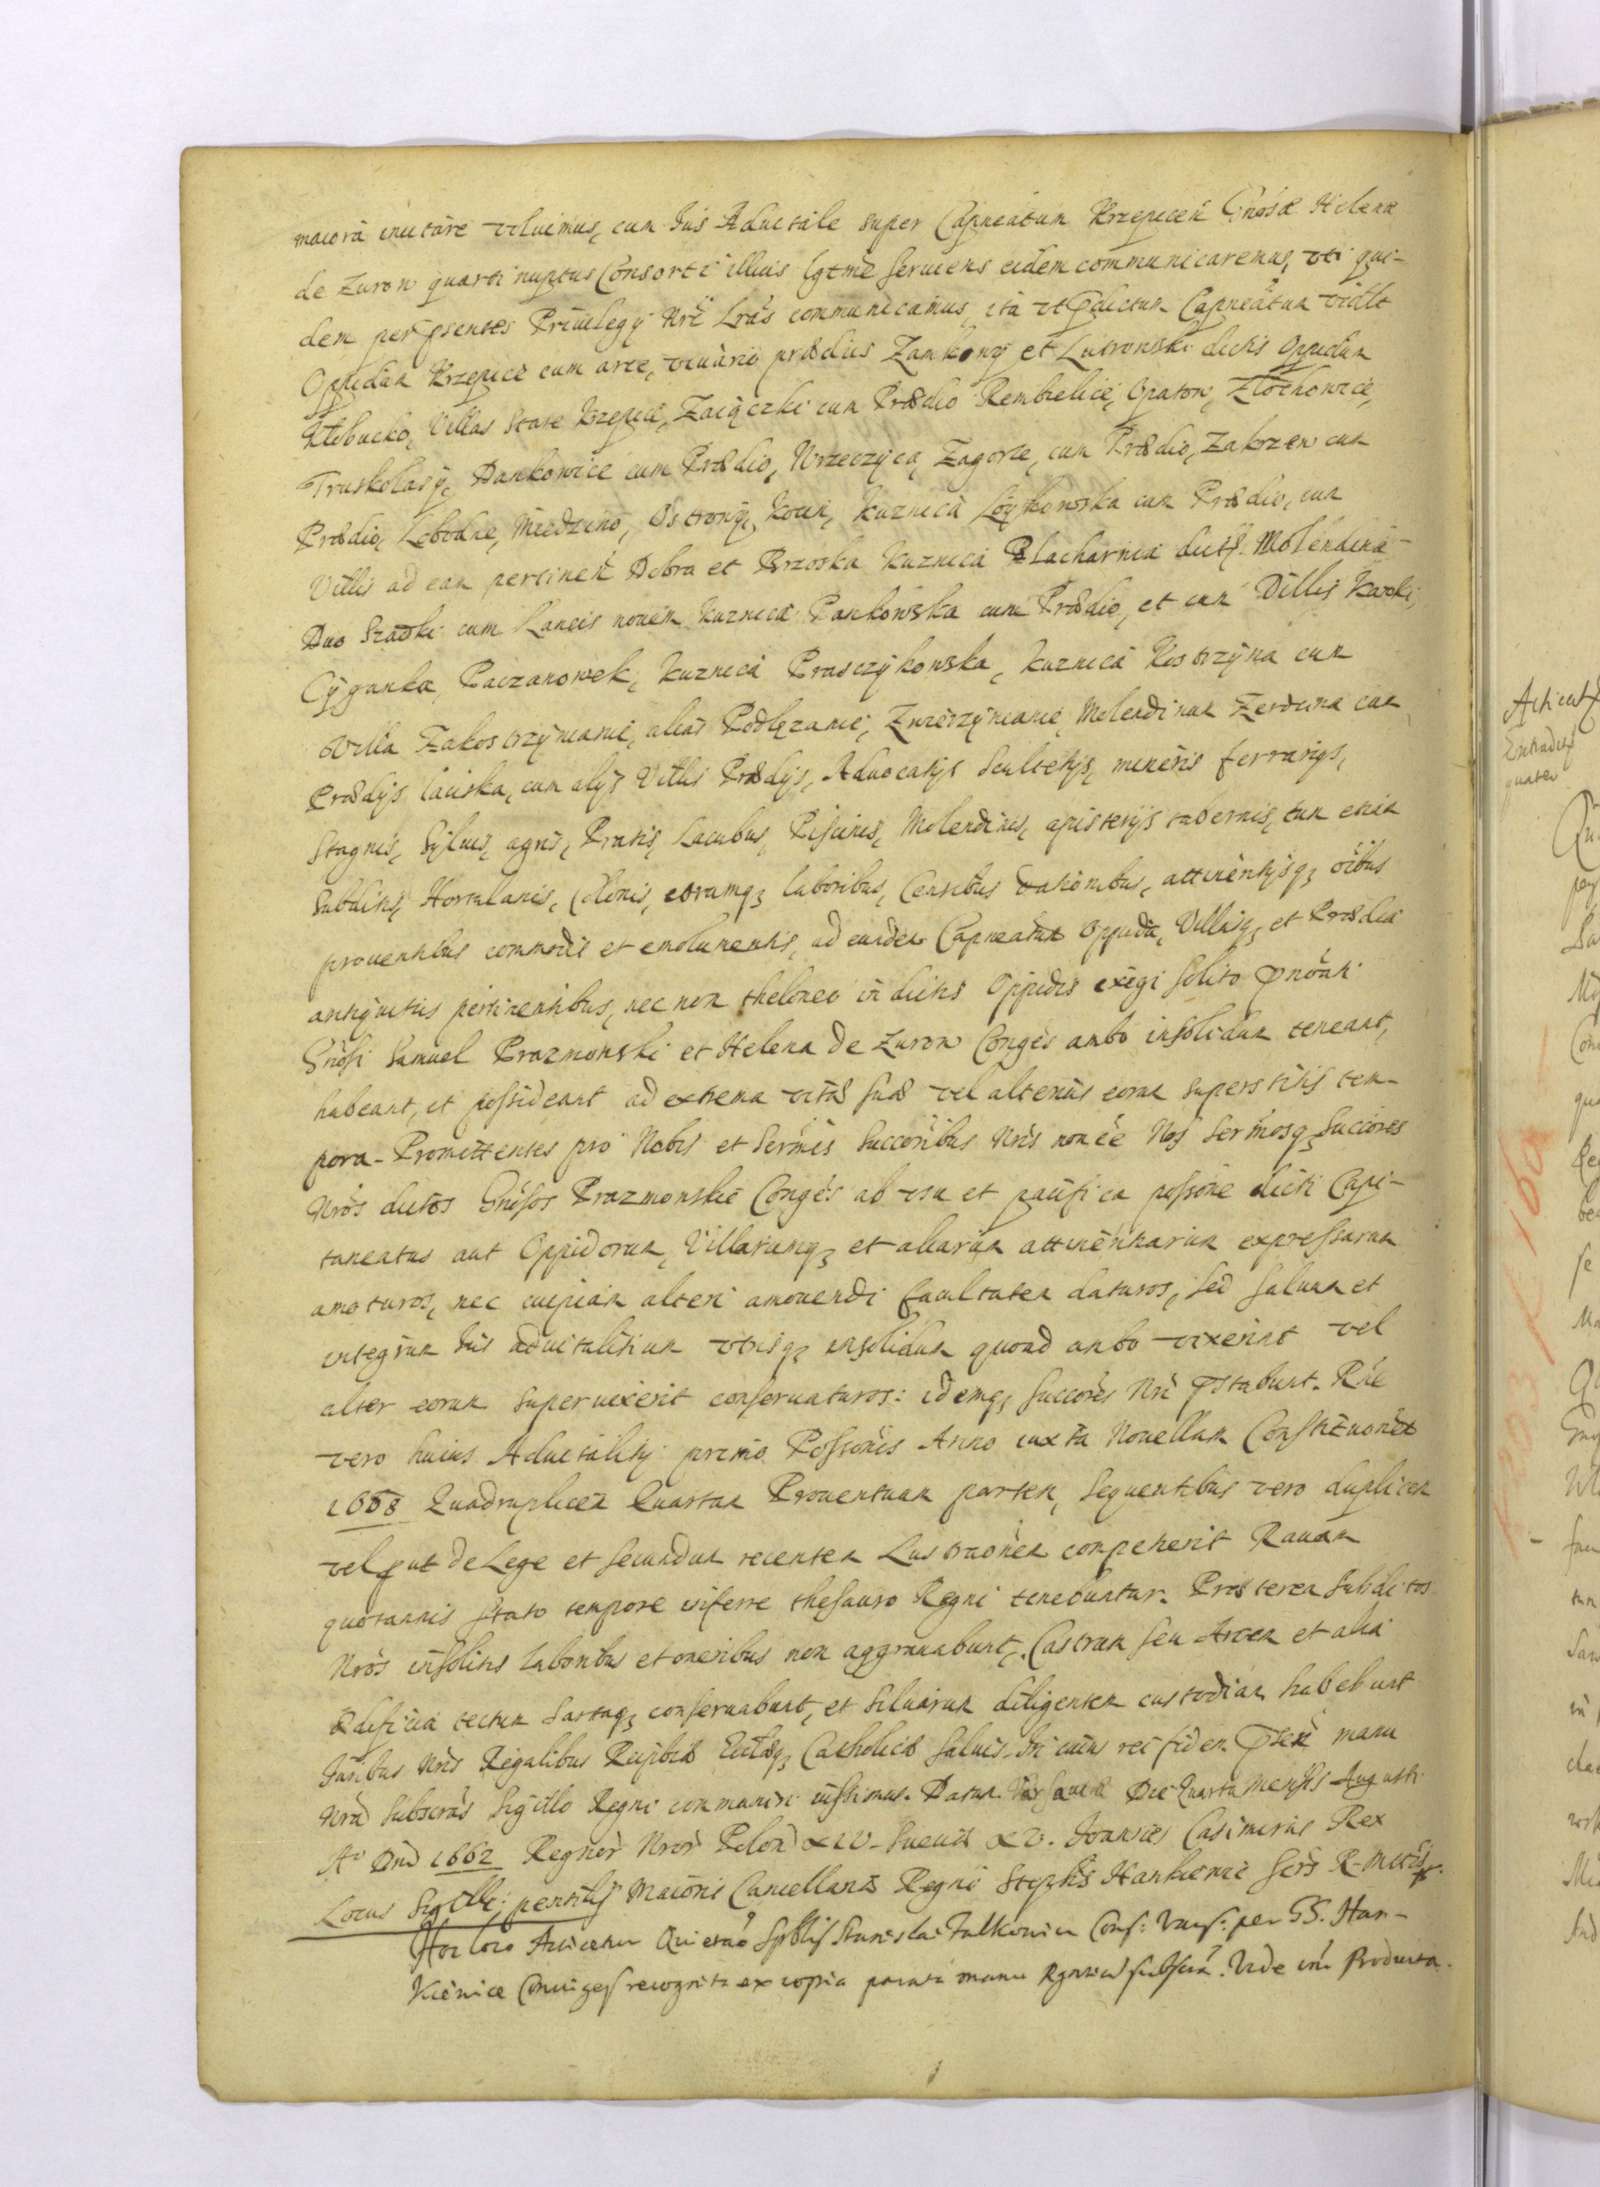 maiora incitare voluimus, cum Ius Aduitale super Capneatum Krzepicen Gnosæ Helenæ
de Zurow quarti nuptus Consorti illius lgtme seruiens eidem communicaremus, uti qui-
dem per psentes Priuilegij Nri Lras communicamus, ita ut pdictum Capneatum vidlt
Oppidum Krzepice cum arce, viuario prædiis Zamkowy et Lutrowski dictis Oppidum
Kłobucko, Villas Stare Krzepice, Zaiączki cum Prædio Rembielice, Opatow, Złochowice,
Truskolasy, Dankowice cum Prædio, Wrzeczyca, Zagorze, cum Prædio, Zakrzew cum
Prædio, Łobodne, Miedzno, Ostrowy, Kocin, Kuznica Łoykowska cum Prædio, cum
Villis ad eam pertinen Debra et Brzoska Kuznica Blacharnia dict. Molendina
Duo Szadki cum Laneis nouem Kuznica Pankowska cum Prædio, et cum Villis Kawki,
Cyganka, Paczanowek, Kuznica Praszczykowska, Kuznica Kostrzyna cum
Villa Zakostrzynianie, alias Podłęzanie, Zwierzynianie, Molendinum Zerdzina cum
Prædijs Laciska, cum alijs Villis Prædijs, Aduocatijs Scultetijs, mineris ferrarijs,
Stagnis, Syluis, agris, Pratis, Lacubus, Piscinis, Molendinis, apisterijs tabernis, tum etiam
Subditis, Hortulanis, Colonis, eorumq laboribus, Censibus dationibus, attinentijsq oibus
prouentibus commodis et emolumentis, ad eundem Capneatum Oppida, Villasq, et Prædia
antiquitus pertinentibus, nec non theloneo in dictis Oppidis exigi solito pnoati
Gnosi Samuel Prazmowski et Helena de Zurow Conges ambo insolidum teneant,
habeant, et possideant ad extrema vitæ suæ vel alterius eorum superstitis tem-
pora. Promittentes pro Nobis et Sermis Succoribus Nris non ee Nos Sermosq Succores
Nros dictos Gnosos Prazmowskie Conges ab usu et pacifica possone dicti Capi-
taneatus aut Oppidorum, Villarumq, et aliarum attinentiarum expressarum
amoturos, nec cuipiam alteri amouendi facultatem daturos, sed saluum et
integrum Ius aduitalitium utrisq insolidum quoad ambo vixerint vel
alter eorum superuixerit conseruaturos: idemq Succores Nri pstabunt. Rne
vero huius Aduitalitij primo Possonis Anno iuxta Nouellam Constituonem
1658 Quadruplicem Quartam Prouentuum partem, sequentibus vero duplicem
vel put de Lege et secundum recentem Lustraonem competierit Rauam
quotannis stato tempore inferre thesauro Regni tenebuntur. Præterea subditos
Nros insolitis laboribus et oneribus non aggrauabunt, Castrum seu Arcem et alia
Ædificia tectum sartaq conseruabunt, et siluarum diligentem custodiam habebunt
Iuribus Nris Regalibus Reipbcæ Ecclæq Catholicæ saluis. In cuius rei fidem psen manu
Nra subscras Sigillo Regni communiri iussimus. Datum Varsauiæ Die Quarta Mensis Augusti
Ao Dni 1662 Regnor Nror Polon XIV. Sueciæ XV. Ioannes Casimirus Rex
Locus Sigilli pensilis Maioris Cancellariæ Regni Stephs Hankiewic Sers R. Mttis
Hoc loco Quietao Stanislai Falkowicz Cons: Vars: per GS. Han-
kiewice Coniuges recognita ex copia manu subscra. Vide int Producta.